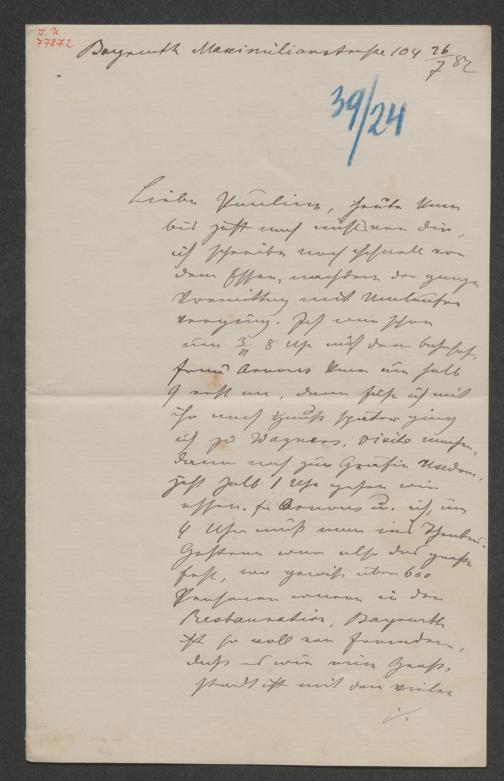 J. N.
77872
Bayreuth Maximilianstraße 104 26/7 82
39/24
Liebe Pauline, heute kam
bis jetzt noch nichts von dir,
ich schreibe noch schnell vor
dem Essen, nachdem der ganze
Vormittag mit Umlaufen
verging. Ich war schon
um 3/4 8 Uhr auf dem Bahnhof,
Frau kam um halb
9 erst an, dann fuhr ich mit
ihr nach Haus später ging
ich zu Wagners, Visite machen,
dann noch zur Gräfin
jetzt halb 1 Uhr gehen wir
essen. Fr u. ich, um
4 Uhr muß man ins Theater.
Gestern war also das große
Fest, wo gewiß über 600
Personen waren in der
Restauration, Bayreuth
ist so voll von Fremden,
daß es wie eine Groß-
stadt ist mit den vielen